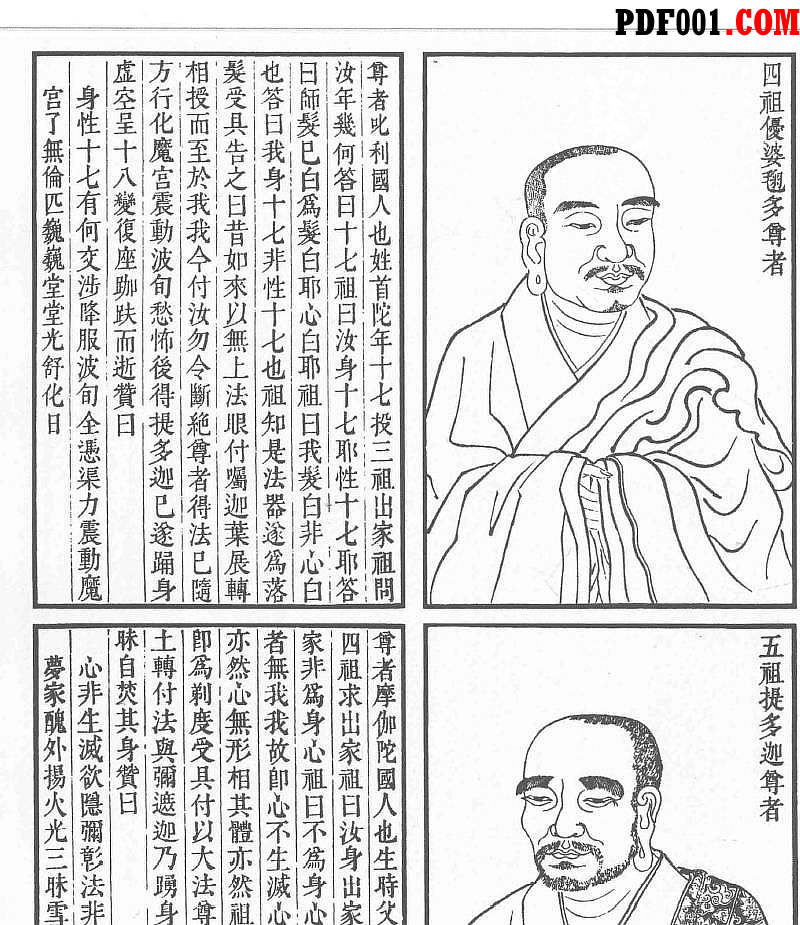 PDF001.COM
四祖優婆毱多尊者
尊者吒利國人也姓首陀年十七投三祖出家祖問
汝年幾何答曰十七祖曰汝身十七耶性十七耶答
曰師髮已白為髮白耶心白耶祖曰我髮白非心白
也答曰我身十七非性十七也祖知是法器遂為落
髮受具告之曰昔如來以無上法眼付囑迦葉展轉
相授而至於我我今付汝勿令斷絕尊者得法已隨
方行化魔宮震動波旬愁怖後得提多迦已遂踊身
虛空呈十八變復座跏趺而逝贊曰
身性十七有何交涉降服波旬全憑渠力震動魔
宮了無倫匹巍巍堂堂光舒化日
五祖提多迦尊者
尊者摩伽陀國人也生時父
四祖求出家祖曰汝身出家
家非為身心祖曰不為身心
者無我我故即心不生滅心
亦然心無形相其體亦然祖
即為剃度受具付以大法尊
土轉付法與彌遮迦乃踴身
昧自焚其身贊曰
心非生滅欲隱彌彰法非
夢家醜外揚火光三昧雪